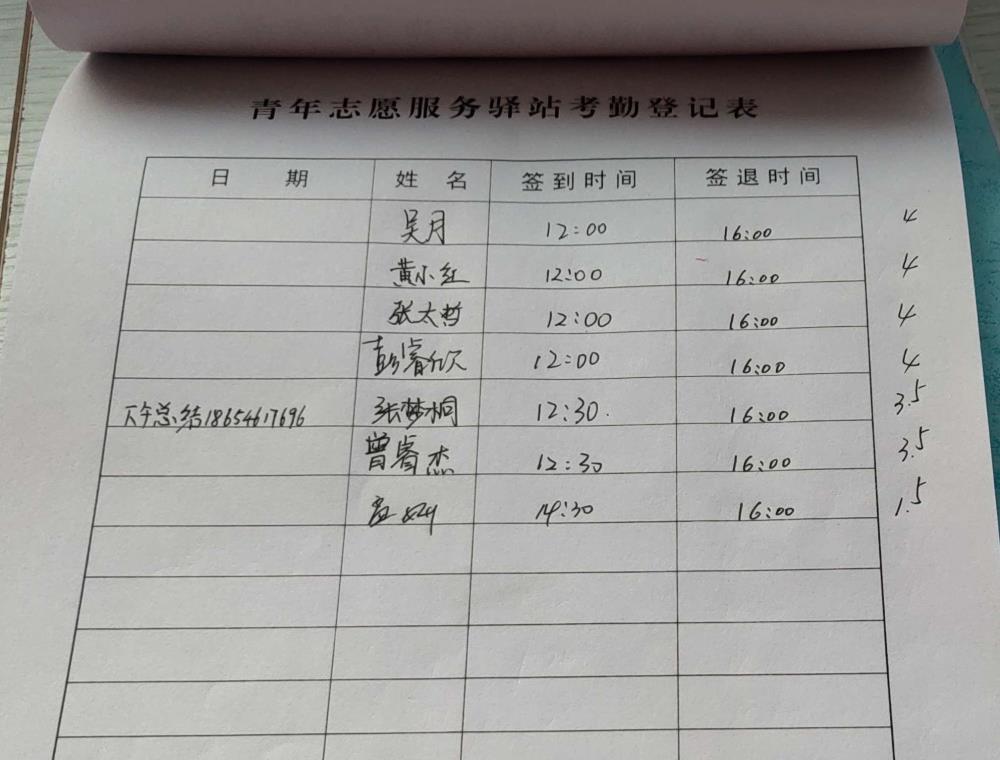 青年志愿服务驿站考勤登记表
日 期 姓 名 签到时间 签退时间
吴月 12:00 16:00 4
黄小红 12:00 16:00 4
张太哲 12:00 16:00 4
彭睿欣 12:00 16:00 4
下午总结18654617696 张梦桐 12:30. 16:00 3.5
曾睿杰 12:30 16:00 3.5
14:30 16:00 1.5